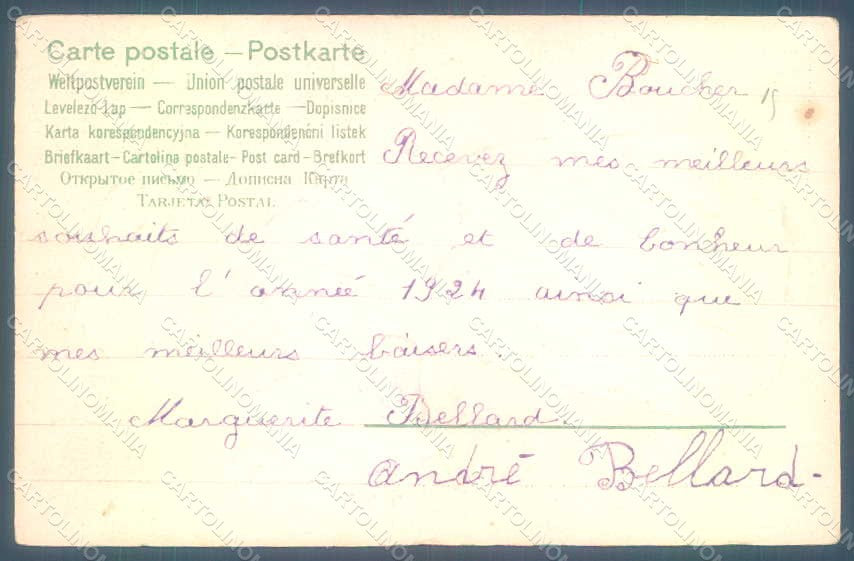 Carte postale — Postkarte
Weltpostverein — Union postale universelle
Levelező-Lap — Correspondenzkarte — Dopisnice
Karta korespondencyjna — Korespondenční listek
Briefkaart — Cartolina postale - Post card — Brefkort
Открытое письмо — Дописна Карта
TARJETA POSTAL
Madame Boucher
Recevez mes meilleurs
souhaits de santé et de bonheur
pour l'année 1924 ainsi que
mes meilleurs baisers.
Marguerite Bellard.
André Bellard-
CARTOLINOMANIA